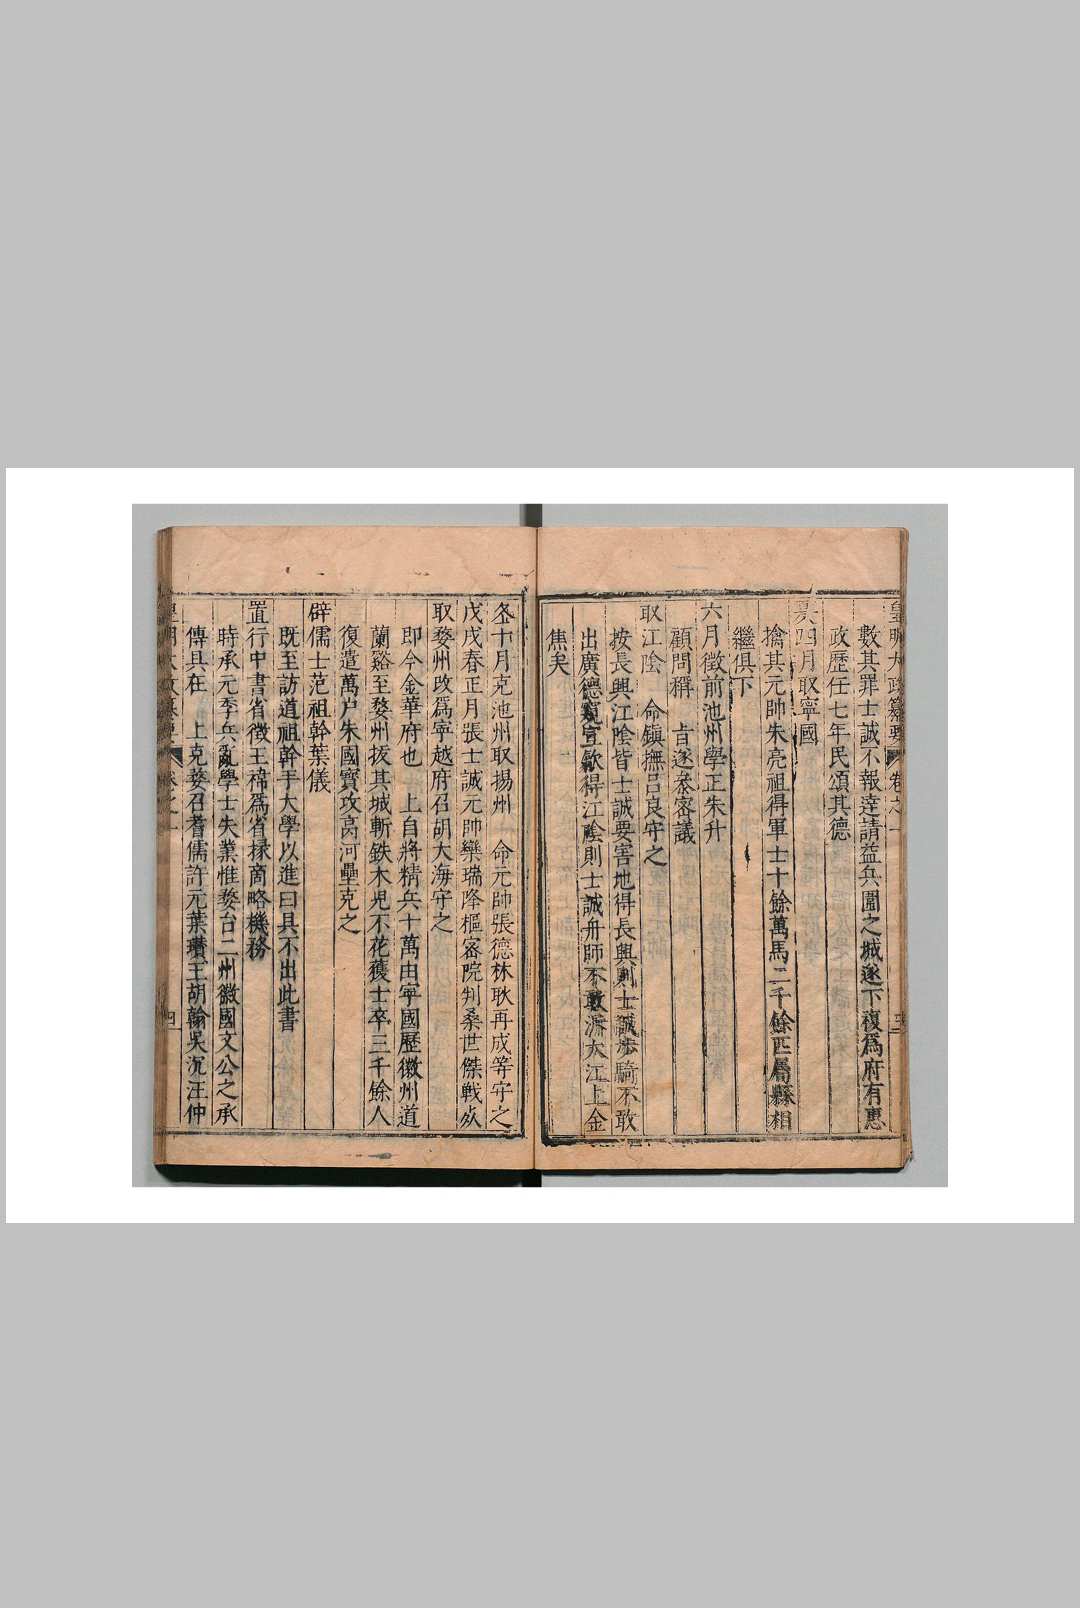 皇明大政纂要 卷之一
數其罪士誠不報達請益兵圍之城遂下複爲府有惠
政歷任七年民頌其德
夏四月取寧國
擒其元帥朱亮祖得軍士十餘萬馬二千餘匹屬縣相
繼俱下
六月徵前池州學正朱升
顧問稱 旨遂叅密議
取江陰 命鎮撫呂良守之
按長興江陰皆士誠要害地得長興則士誠步騎不敢
出廣德窺宣歙得江陰則士誠舟師不敢泝大江上金
焦矣
冬十月克池州取揚州 命元帥張德林耿再成等守之
戊戌春正月張士誠元帥欒瑞降樞密院判桑世傑戰歿
取婺州改爲寧越府召胡大海守之
即今金華府也 上自將精兵十萬由寧國歷徽州道
蘭谿至婺州拔其城斬鉄木児不花獲士卒三千餘人
復遣萬户朱國寶攻高河壘克之
辟儒士范祖幹葉儀
既至訪道祖幹手大學以進曰具不出此書
置行中書省徵王褘爲省掾商略機務
時承元季兵亂學士失業惟婺台二州徽國文公之承
傳具在 上克婺召耆儒許元葉瓚王胡翰吳沉汪仲
皇明大政纂要 卷之一 四